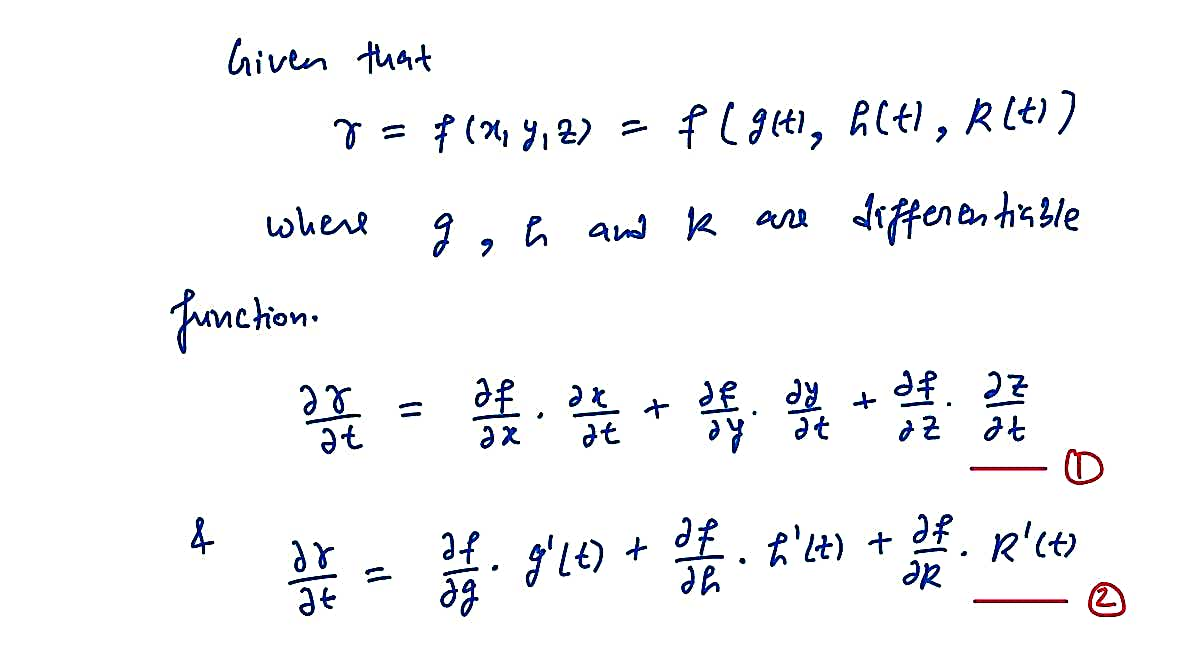 Given that
r = f(x, y, z) = f(g(t), h(t), k(t))
where g, h and k are differentiable
function.
∂r/∂t = ∂f/∂x · ∂x/∂t + ∂f/∂y · ∂y/∂t + ∂f/∂z · ∂z/∂t
—— ①
& ∂r/∂t = ∂f/∂g · g'(t) + ∂f/∂h · h'(t) + ∂f/∂k · k'(t)
—— ②